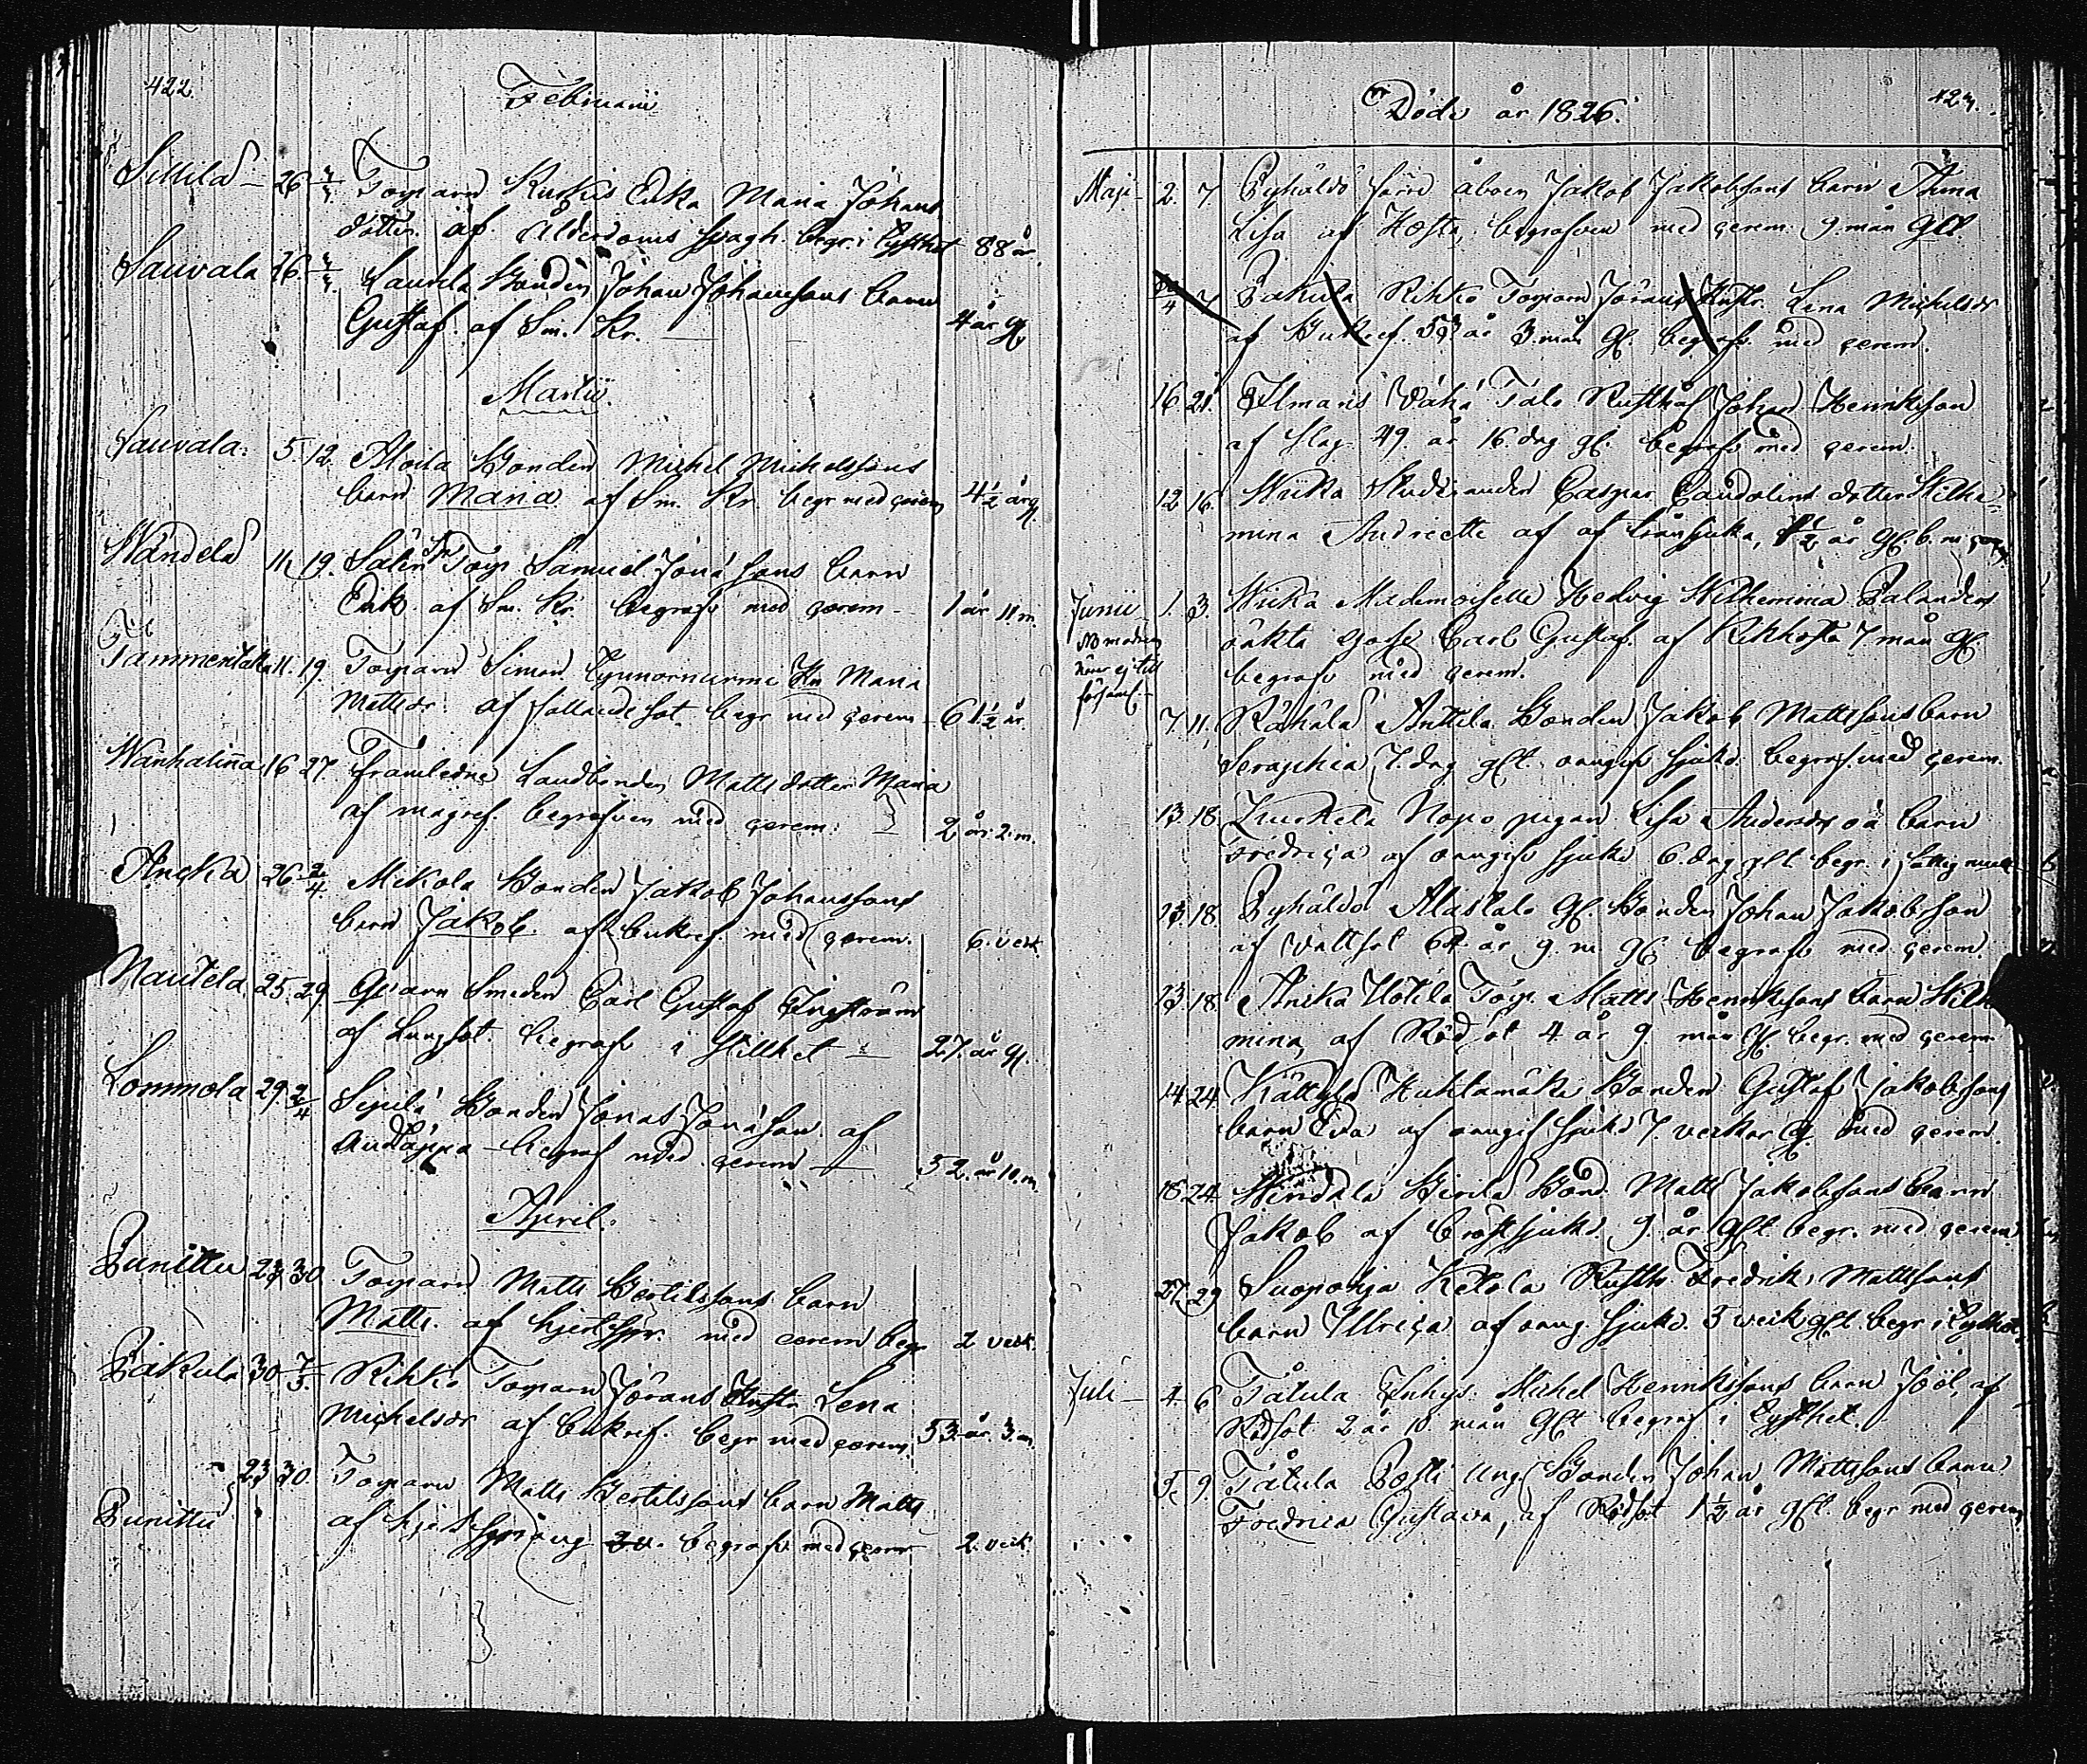 422.
Februarii
Sillilä - 26 Torparen Kuskis Enka Maria Johans
dotter. af Ålderdoms begr. i tysthet 88 år.
Sauvala 26 Laurila Bonden Johan Johanssons barn
Gustaf. af Sm. Kr. 4 år gl.
Martii.
Sauvala. 5. 12. Bonden Michel Michelssons
barn Maria af Sm. Kr. begr med cerem 4½ år gl
Wändelä 11. 19. Torp. Samuel barn
Erik. af Sm. Kr. begrafv med cerem - 1 år 11 m.
Tammentaka 11. 19. Torparen Simon Maria
Mattsdr. af fallandesot begr med cerem - 61½ år.
Wanhalinna 16 27. Framledne Landbonden Matts dotter Maria
af magref. begrafven med cerem. 2 år. 2. m.
Anska 26 2/4 Mikola Bonden Jakob Johanssons
barn Jakob. af bukref. med cerem. 6. veck.
Nautela 25. 29. Qvarn Smeden Carl Gustaf Engström
af Lungsot. begrafv i Stillhet — 27. år gl.
Lommola 29. 2/4 Seppälä Bonden Jonas af
Andtäppa - begraf med cerem — 52. år 10. m.
April.
Punittu 23 30 Torparen Matts Bertilssons barn
Matts. af hjertspr. med cerem begr 2 veck.
Pakula 30 7/5. Rihko Torparen Jörans Hustr Lena
Michelsdr af bukref. begr med cerem. 53. år. 3. m.
Punittu 23 30. Torparen Matts Bertilssons barn Matts
af hjertspräng begrafv med cerem 2. veck.
Döde år 1826.
423.
Maji - 2. 7 Pyhäldö förre åboen Jakob Jakobssons barn
Lisa af Hosta, begrafven med cerem. 9. mån gll.
/4 7 Pakula Rihko Torparen Jörans Hustr. Lena Michelsdr
af Bukref. 53 år 3. mån gl. begrafv. med cerem.
16 21. Ilmaris Vähä Talo Rusthål Johan Henriksson
af slag. 49 år 16. dag gl. begrafv med cerem.
12 16. Wiika Studeranden Caspar dotter Wilhe=
mina Andriette af af tvinsjuka, 1½ år gl. b. m cerem
Junii 1. 3. Wiika Mademoiselle Hedvig Wilhemina Palanders
NB modren hör ej till församl. oäkta gosse Carl Gustaf. af Kikhosta 7. mån gl.
begrafv med cerem.
7. 11. Rähälä Anttila Bonden Jakob Mattssons barn
Seraphia 7. dag glt. oangif sjukd. begraf. med cerem.
13. 18. Kurkela Nopo pigan Lisa Andersdr oä barn
Fredrica af oangifv sjukd 6. dag glt. begr. i
13. 18. Pyhäldö Alastalo gl. Bonden Johan Jakobsson
af Vattsot 64 år 9. m. gl. begrafv med cerem.
13. 18. Anska Uotila Torp. Matts Henrikssons barn Wilhe
mina, af Rödsot 4 år 9. mån gl. begr. med cerem.
14. 24. Kättylä Huhtamäki Bonden Gustaf Jakobssons
barn Eva af oangif sjukd 7. veckor gl. med cerem.
18. 24. Hirvilä Bond. Matts Jakobssons barn
Jakob af bröstsjukd. 9. år glt. begr. med cerem
27. 29 Suopohja Ketola Rusth. Fredrik Mattssons
barn Ulrica af oang. sjukd. 3 veck. glt. begr i tysthet.
Juli — 4. 6 Tätula Inhys. Michel Henrikssons barn Joël, af
Rödsot 2 år 10. mån glt. begraf i tysthet.
5. 9. Tätula Posti Ung Bonden Johan Mattssons barn
Fredrica Gustava, af Rödsot 1½ år glt. begr. med cerem